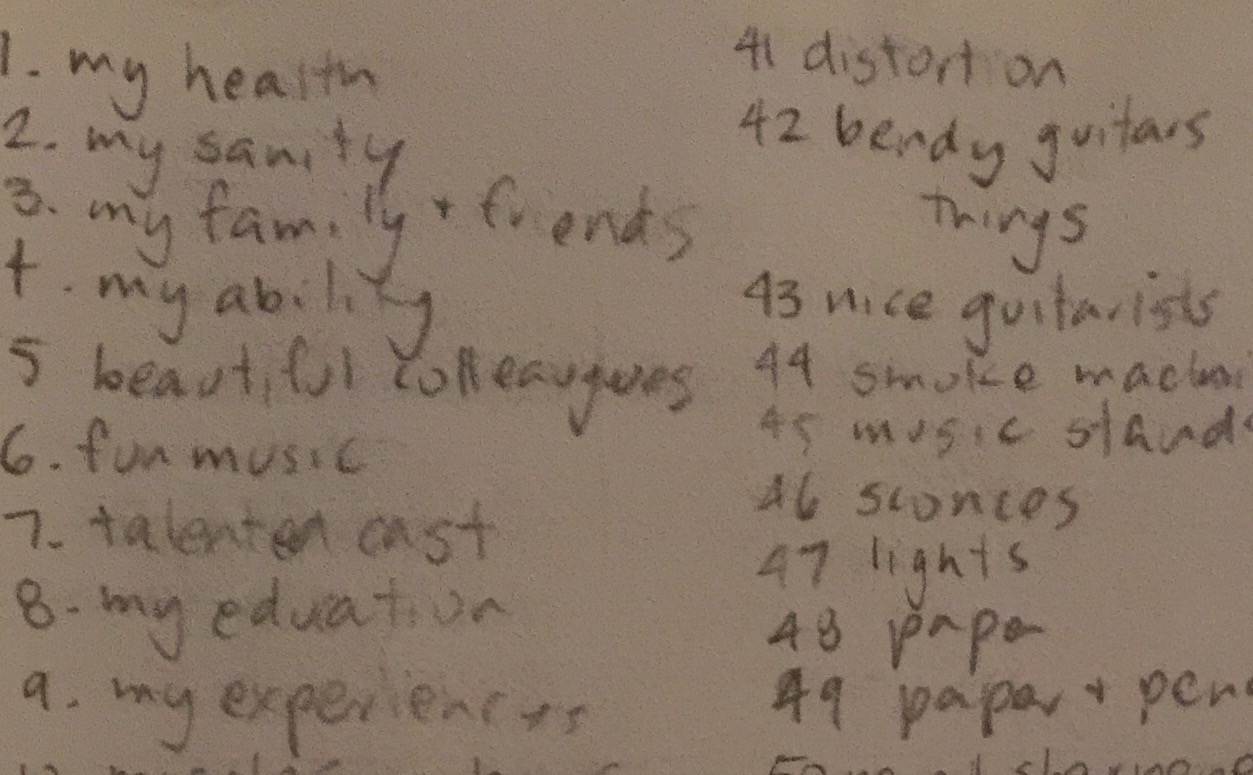 1. my health
2. my sanity
3. my family + friends
4. my ability
5 beautiful colleaugues
6. fun music
7. talented cast
8. my eduation
9. my experiences
41 distortion
42 bendy guitars
things
43 nice guitarists
44 smoke machi
45 music stands
46 sconces
47 lights
48 papa
49 paper + pen
50